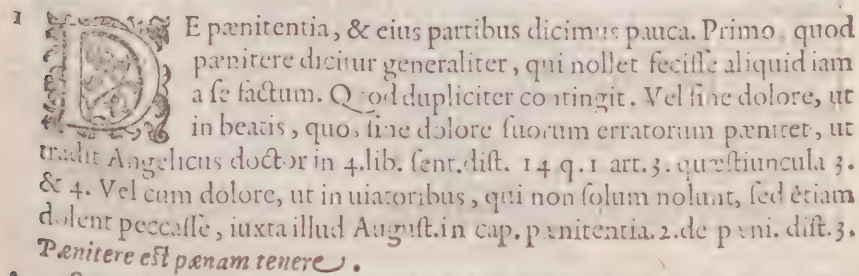 1 DE pænitentia, & eius partibus dicimus pauca. Primo, quod
pænitere dicitur generaliter, qui nollet feciſſe aliquid iam
a ſe factum. Quod dupliciter contingit. Vel ſine dolore, ut
in beatis, quos ſine dolore ſuorum erratorum pænitet, ut
tradit Angelicus doctor in 4.lib. ſent.diſt. 14 q.1 art.3. quæſtiuncula 3.
& 4. Vel cum dolore, ut in uiatoribus, qui non ſolum nolunt, ſed etiam
dolent peccaſſe, iuxta illud Auguſt.in cap. pænitentia.2.de pæni. diſt.3.
Pænitere eſt pænam tenere.